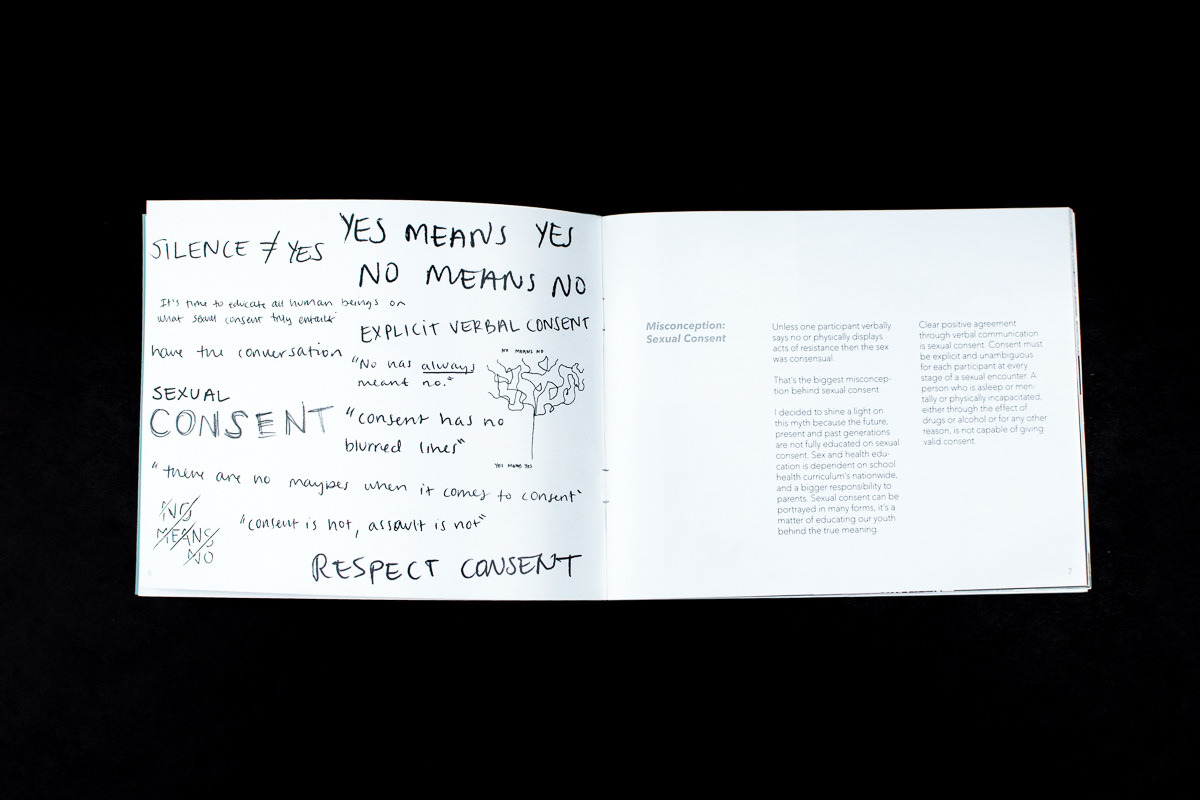 SILENCE ≠ YES
YES MEANS YES
NO MEANS NO
It's time to educate all human beings on
what sexual consent truly entails
EXPLICIT VERBAL CONSENT
have the conversation
"No has always
meant no."
NO MEANS NO
YES MEANS YES
SEXUAL
CONSENT
"consent has no
blurred lines"
"there are no maybes when it comes to consent"
NO
MEANS
NO
"consent is hot, assault is not"
RESPECT CONSENT
6
Misconception:
Sexual Consent
Unless one participant verbally
says no or physically displays
acts of resistance then the sex
was consensual.
That's the biggest misconcep-
tion behind sexual consent
I decided to shine a light on
this myth because the future,
present and past generations
are not fully educated on sexual
consent. Sex and health edu-
cation is dependent on school
health curriculum's nationwide,
and a bigger responsibility to
parents. Sexual consent can be
portrayed in many forms, it's a
matter of educating our youth
behind the true meaning.
Clear positive agreement
through verbal communication
is sexual consent. Consent must
be explicit and unambiguous
for each participant at every
stage of a sexual encounter. A
person who is asleep or men-
tally or physically incapacitated,
either through the effect of
drugs or alcohol or for any other
reason, is not capable of giving
valid consent.
7